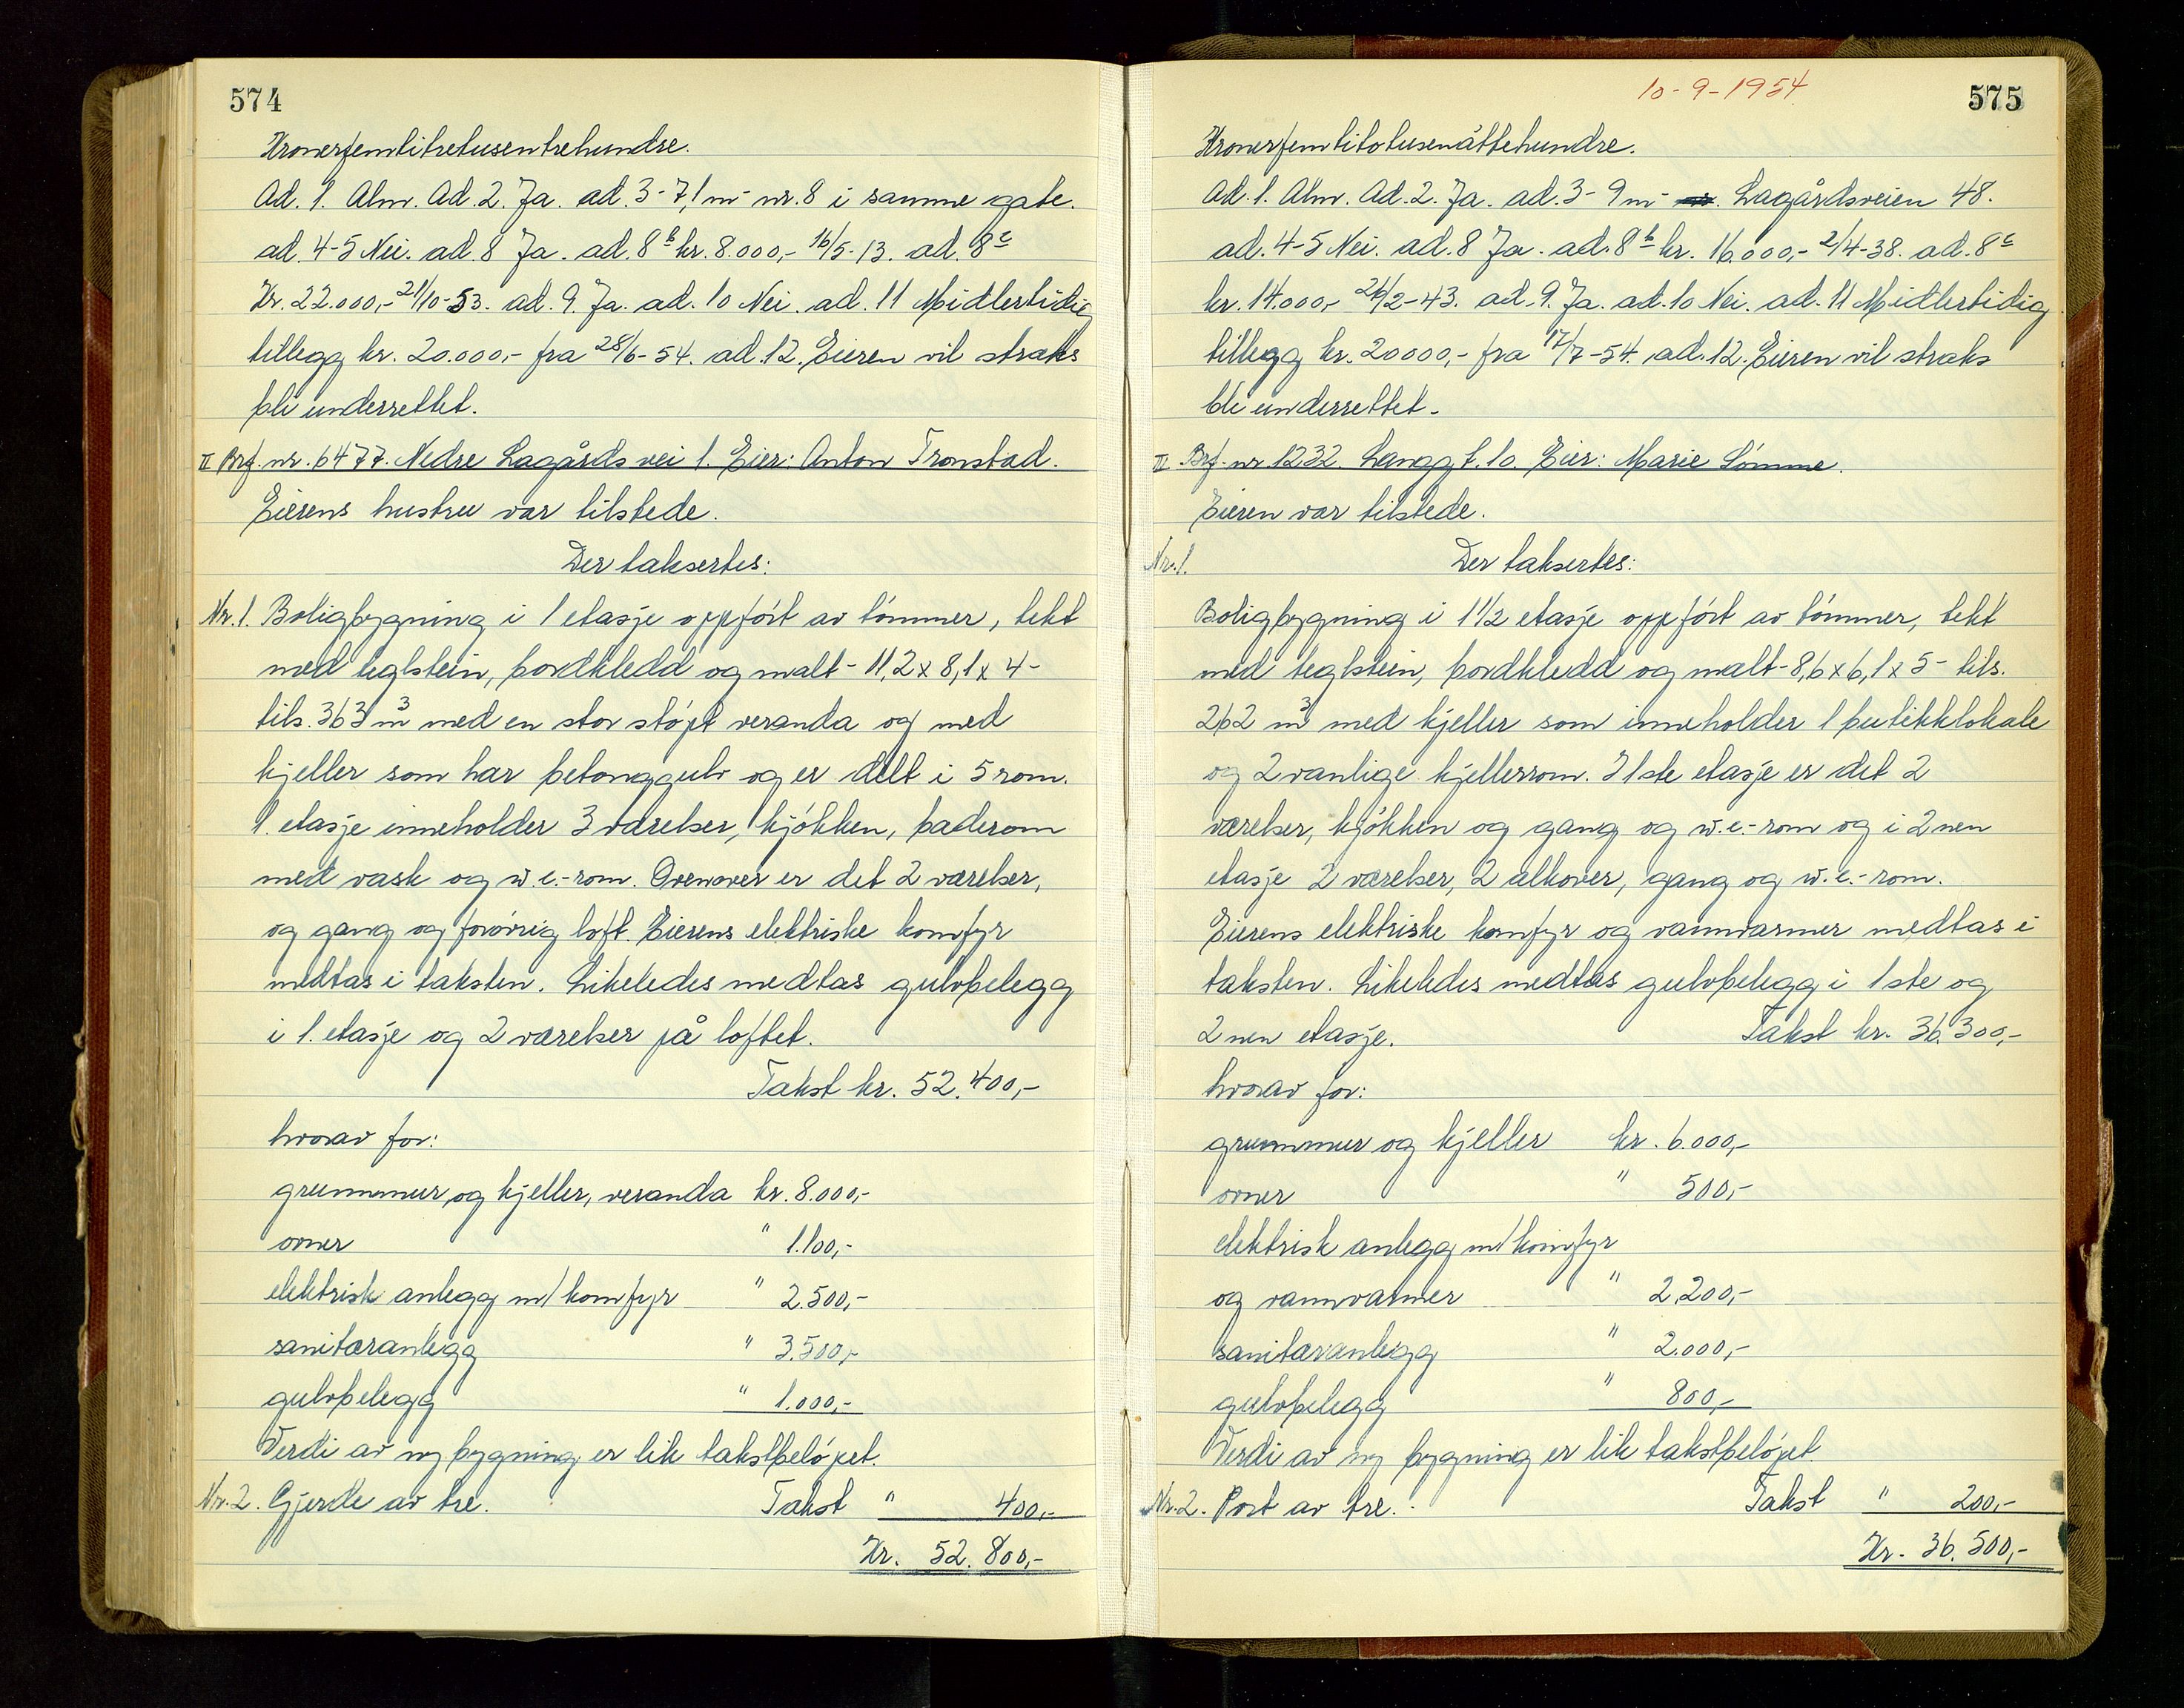 574
Kronerfemtitretusentrehundre.
Ad. 1. Alm. Ad. 2. Ja. ad. 3 - 7,1 m - nr. 8 i samme gate.
ad. 4-5 Nei. ad. 8 Ja. ad. 8b kr. 8.000,- 16/5-13. ad. 8c
Kr. 22.000,- 21/10-53. ad. 9. Ja. ad. 10 Nei. ad. 11 Midlertidig
tillegg kr. 20.000,- fra 28/6-54. ad. 12. Eieren vil straks
bli underrettet.
II Brf. nr. 6477. Nedre Lagårdsvei 1. Eier: Anton Tronstad.
Eierens hustru var tilstede.
Der taksertes:
Nr. 1. Boligbygning i 1 etasje oppført av tømmer, tekt
med teglstein, bordkledd og malt - 11,2 x 8,1 x 4 -
tils. 363 m3 med en stor støpt veranda og med
kjeller som har betonggulv og er delt i 5 rom.
1. etasje inneholder 3 værelser, kjøkken, baderom
med vask og w.c.-rom. Ovenover er det 2 værelser,
og gang og forøvrig loft. Eierens elektriske komfyr
medtas i taksten. Likeledes medtas gulvbelegg
i 1. etasje og 2 værelser på loftet.
Takst kr. 52.400,-
hvorav for:
grunnmur og kjeller, veranda kr. 8.000,-
ovner " 1.100,-
elektrisk anlegg m/komfyr " 2.500,-
sanitæranlegg " 3.500,-
gulvbelegg " 1.000,-
Verdi av ny bygning er lik takstbeløpet.
Nr. 2. Gjerde av tre. Takst " 400,-
Kr. 52.800,-
10-9-1954
575
Kronerfemtitotusenåttehundre.
Ad. 1. Alm. Ad. 2. Ja. ad. 3 - 9 m - Lagårdsveien 48.
ad. 4-5 Nei. ad. 8 Ja. ad. 8b kr. 16.000,- 2/4-38. ad. 8c
kr. 14.000,- 26/2-43. ad. 9. Ja. ad. 10 Nei. ad. 11 Midlertidig
tillegg kr. 20000,- fra 17/7-54. ad. 12. Eieren vil straks
bli underrettet.
II Brf. nr. 1232. Langgt. 10. Eier: Marie Sømme.
Eieren var tilstede.
Nr. 1. Der taksertes:
Boligbygning i 1 1/2 etasje oppført av tømmer, tekt
med teglstein, bordkledd og malt - 8,6 x 6,1 x 5 - tils.
262 m3 med kjeller som inneholder 1 butikklokale
og 2 vanlige kjellerrom. I 1ste etasje er det 2
værelser, kjøkken og gang og w.c.-rom og i 2nen
etasje 2 værelser, 2 alkover, gang og w.c.-rom.
Eierens elektriske komfyr og vannvarmer medtas i
taksten. Likeledes medtas gulvbelegg i 1ste og
2nen etasje. Takst kr. 36.300,-
hvorav for:
grunnmur og kjeller kr. 6.000,-
ovner " 500,-
elektrisk anlegg m/komfyr
og vannvarmer " 2.200,-
sanitæranlegg " 2.000,-
gulvbelegg " 800,-
Verdi av ny bygning er lik takstbeløpet.
Nr. 2. Port av tre. Takst " 200,-
Kr. 36.500,-